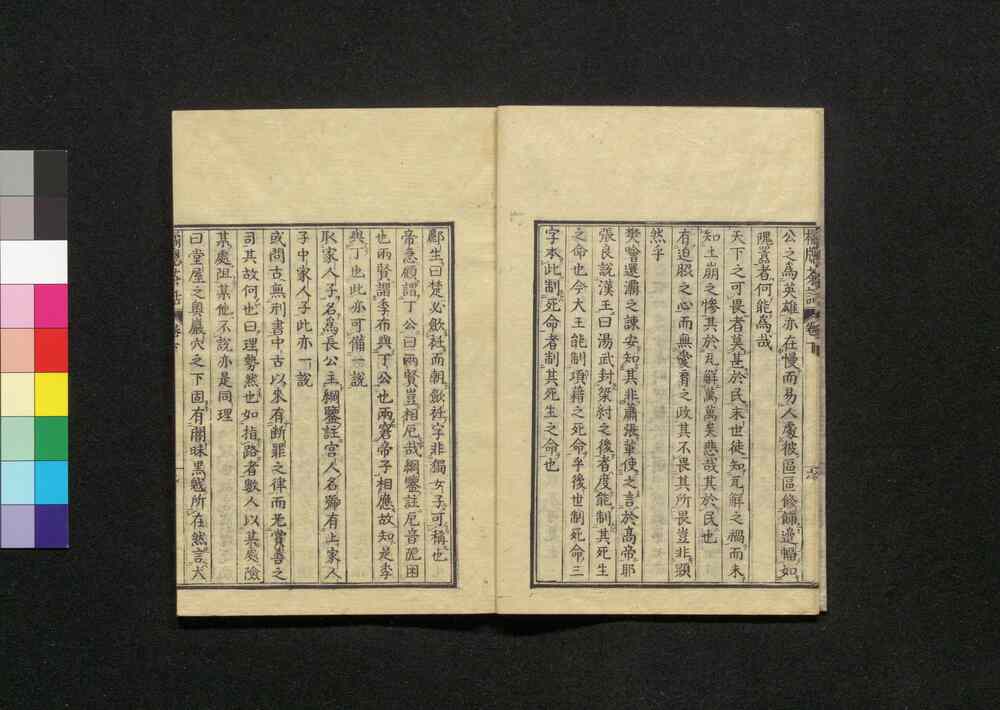 公之爲英雄亦在慢而易人處彼區區修飾邊幅如
隗嚣者何能爲哉
天下之可畏者莫甚於民末世徒知瓦解之禍而未
知土崩之慘其於瓦解萬萬矣悲哉其於民也
有迫脅之心而無愛育之政其不畏其所畏豈非頭
然乎
樊噲還灞之諫安知其非蕭張輩使之言於高帝耶
張良說漢王曰湯武封桀紂之後者度能制其死生
之命也今大王能制項藉之死命乎後世制死命三
字本此制死命者制其死生之命也
酈生曰楚必斂衽而朝斂衽字非獨女子可稱也
帝急顧謂丁公曰兩賢豈相厄哉綱鑒註厄音阨困
也兩賢謂季布與丁公也兩賢帝子相應故知是季
與丁也此亦可備一說
取家人子名爲長公主綱鑒註宮人名號有上家人
子中家人子此亦一說
或問古無刑書中古以來有斷罪之律而無賞善之
司其故何也曰理勢然也如指路者數人以某處險
某處阻某他不說亦是同理
曰堂屋之奧巖穴之下固有闇昧黑㓗所在然言大